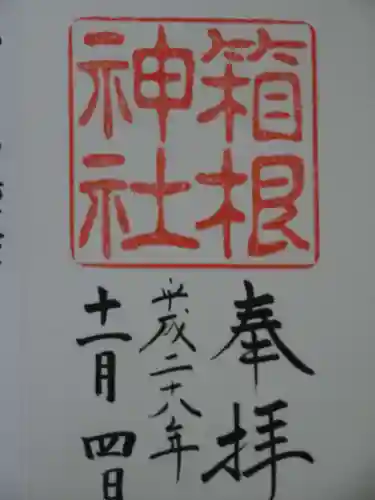 箱根
神社
奉拝
平成二十八年
十一月四日